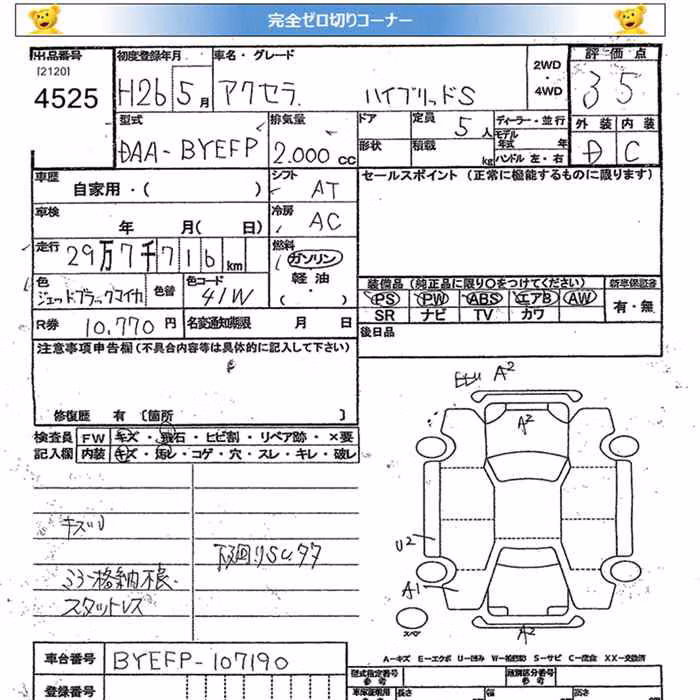 完全ゼロ切りコーナー
出品番号 初度登録年月 車名・グレード 2WD・4WD 評価点
[2120]
4525 H26 5月 アクセラ ハイブリッドS 35
型式 排気量 ドア 定員 5人 ディーラー・並行 外装 内装
DAA-BYEFP 2.000cc 形状 積載 kg モデル年式 年 ハンドル 左・右 D C
車歴 自家用・( ) シフト AT セールスポイント (正常に機能するものに限ります)
車検 年 月( 日) 冷房 AC
走行 29万7千716km 燃料 ガソリン 軽油 ( ・ )
色 ジェットブラックマイカ 色替 色コード 41W 装備品 (純正品に限り○をつけてください) 新車保証書
PS PW ABS エアB AW 有・無
SR ナビ TV カワ
R券 10,770円 名変通知期限 月 日 後日品
注意事項申告欄 (不具合内容等は具体的に記入して下さい)
修復歴 有 [箇所 ]
検査員 FW キズ・飛石・ヒビ割・リペア跡・×要
記入欄 内装 キズ・汚レ・コゲ・穴・スレ・キレ・破レ
A2
A2
キズU
下廻りSU.タワ
ミラー格納不良
スタットレス
U2
A1
A2
スペア
A-キズ E-エクボ U-凹み W-補修跡 S-サビ C-腐食 XX-交換済
車台番号 BYEFP-107190
型式指定番号 参考 類別区分番号 参考
登録番号 車庫証明用 参考 長さ 幅 高さ